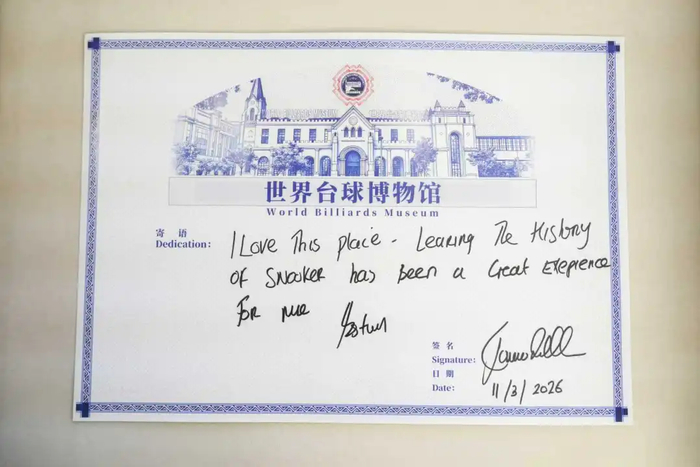 世界台球博物馆
World Billiards Museum
寄 语
Dedication:
I Love This place - Learing The History
OF SNOOKER has Been a Great Exeprence
FOR me
签 名
Signature:
日 期
Date:
11/3/2026